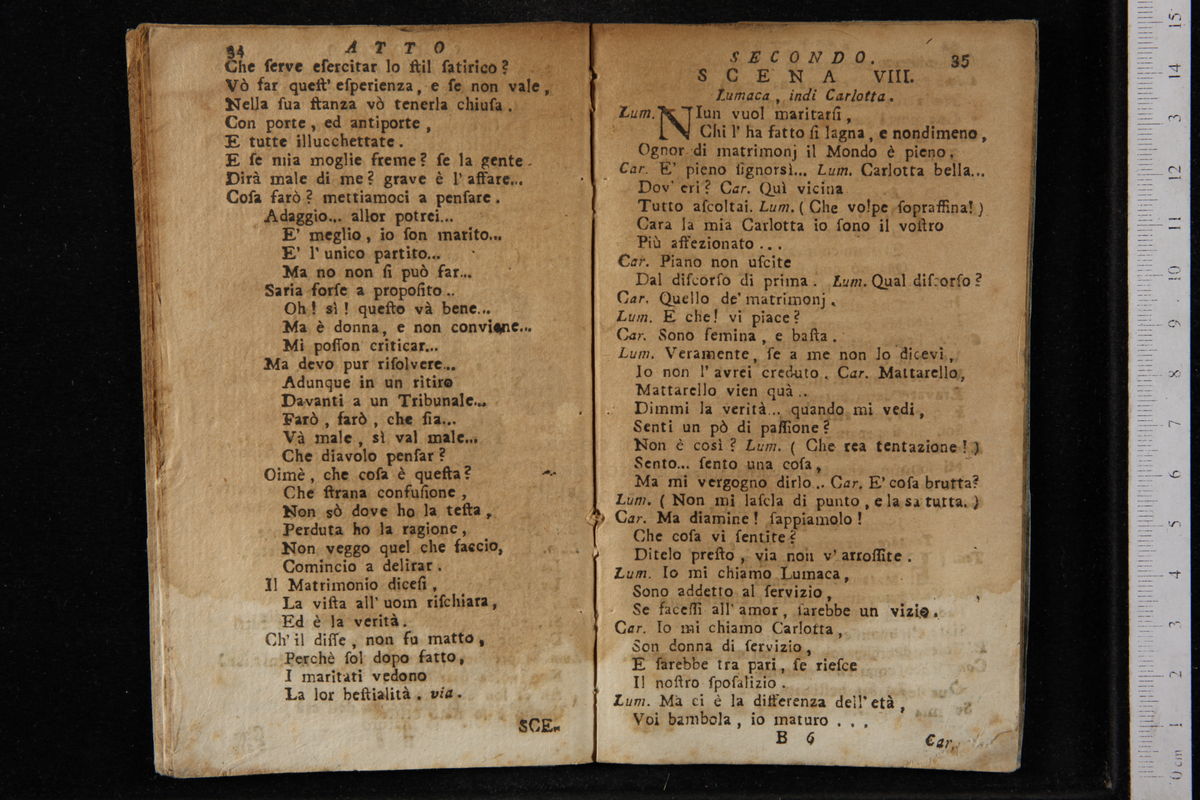 34 ATTO
Che ſerve eſercitar lo ſtil ſatirico?
Vò far queſt' eſperienza, e ſe non vale,
Nella ſua ſtanza vò tenerla chiuſa.
Con porte, ed antiporte,
E tutte illucchettate.
E ſe mia moglie freme? ſe la gente
Dirà male di me? grave è l'affare...
Coſa farò? mettiamoci a penſare.
Adaggio... allor potrei...
E' meglio, io ſon marito...
E' l'unico partito...
Ma no non ſi può far...
Saria forſe a propoſito..
Oh! sì! queſto và bene...
Ma è donna, e non conviene...
Mi poſſon criticar...
Ma devo pur riſolvere...
Adunque in un ritiro
Davanti a un Tribunale...
Farò, farò, che ſia...
Và male, sì val male...
Che diavolo penſar?
Oimè, che coſa è queſta?
Che ſtrana confuſione,
Non sò dove ho la teſta,
Perduta ho la ragione,
Non veggo quel che faccio,
Comincio a delirar.
Il Matrimonio diceſi,
La viſta all' uom riſchiara,
Ed è la verità.
Ch' il diſſe, non fu matto,
Perchè ſol dopo fatto,
I maritati vedono
La lor beſtialità. via.
SCE-
SECONDO. 35
SCENA VIII.
Lumaca, indi Carlotta.
Lum. NIun vuol maritarſi,
Chi l' ha fatto ſi lagna, e nondimeno,
Ognor di matrimonj il Mondo è pieno.
Car. E' pieno ſignorsì... Lum. Carlotta bella...
Dov' eri? Car. Quì vicina
Tutto aſcoltai. Lum. (Che volpe ſopraffina!)
Cara la mia Carlotta io ſono il voſtro
Più affezionato ...
Car. Piano non uſcite
Dal diſcorſo di prima. Lum. Qual diſcorſo?
Car. Quello de' matrimonj.
Lum. E che! vi piace?
Car. Sono femina, e baſta.
Lum. Veramente, ſe a me non lo dicevi,
Io non l' avrei creduto. Car. Mattarello,
Mattarello vien quà..
Dimmi la verità... quando mi vedi,
Senti un pò di paſſione?
Non è così? Lum. (Che rea tentazione!)
Sento... ſento una coſa,
Ma mi vergogno dirlo.. Car. E' coſa brutta?
Lum. (Non mi laſcia di punto, e la sa tutta.)
Car. Ma diamine! ſappiamolo!
Che coſa vi ſentite?
Ditelo preſto, via non v' arroſſite.
Lum. Io mi chiamo Lumaca,
Sono addetto al ſervizio,
Se faceſſi all' amor, ſarebbe un vizio.
Car. Io mi chiamo Carlotta,
Son donna di ſervizio,
E ſarebbe tra pari, ſe rieſce
Il noſtro ſpoſalizio.
Lum. Ma ci è la differenza dell' età,
Voi bambola, io maturo ...
B 6 Car.